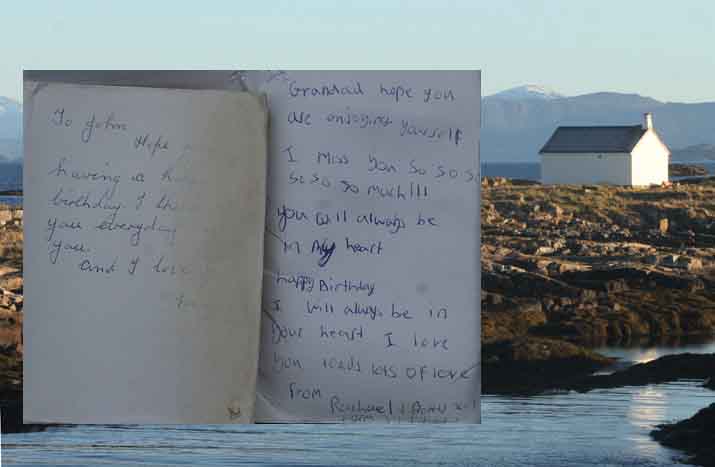 To John
Hope
having a
birthday. I
you everyday
you.
and I love
Grandad hope you
are enjoying yourself
I miss you so so s
so so so much!!!
you will always be
in my heart
happy Birthday
I will always be in
your heart I love
you loads lots of love
From